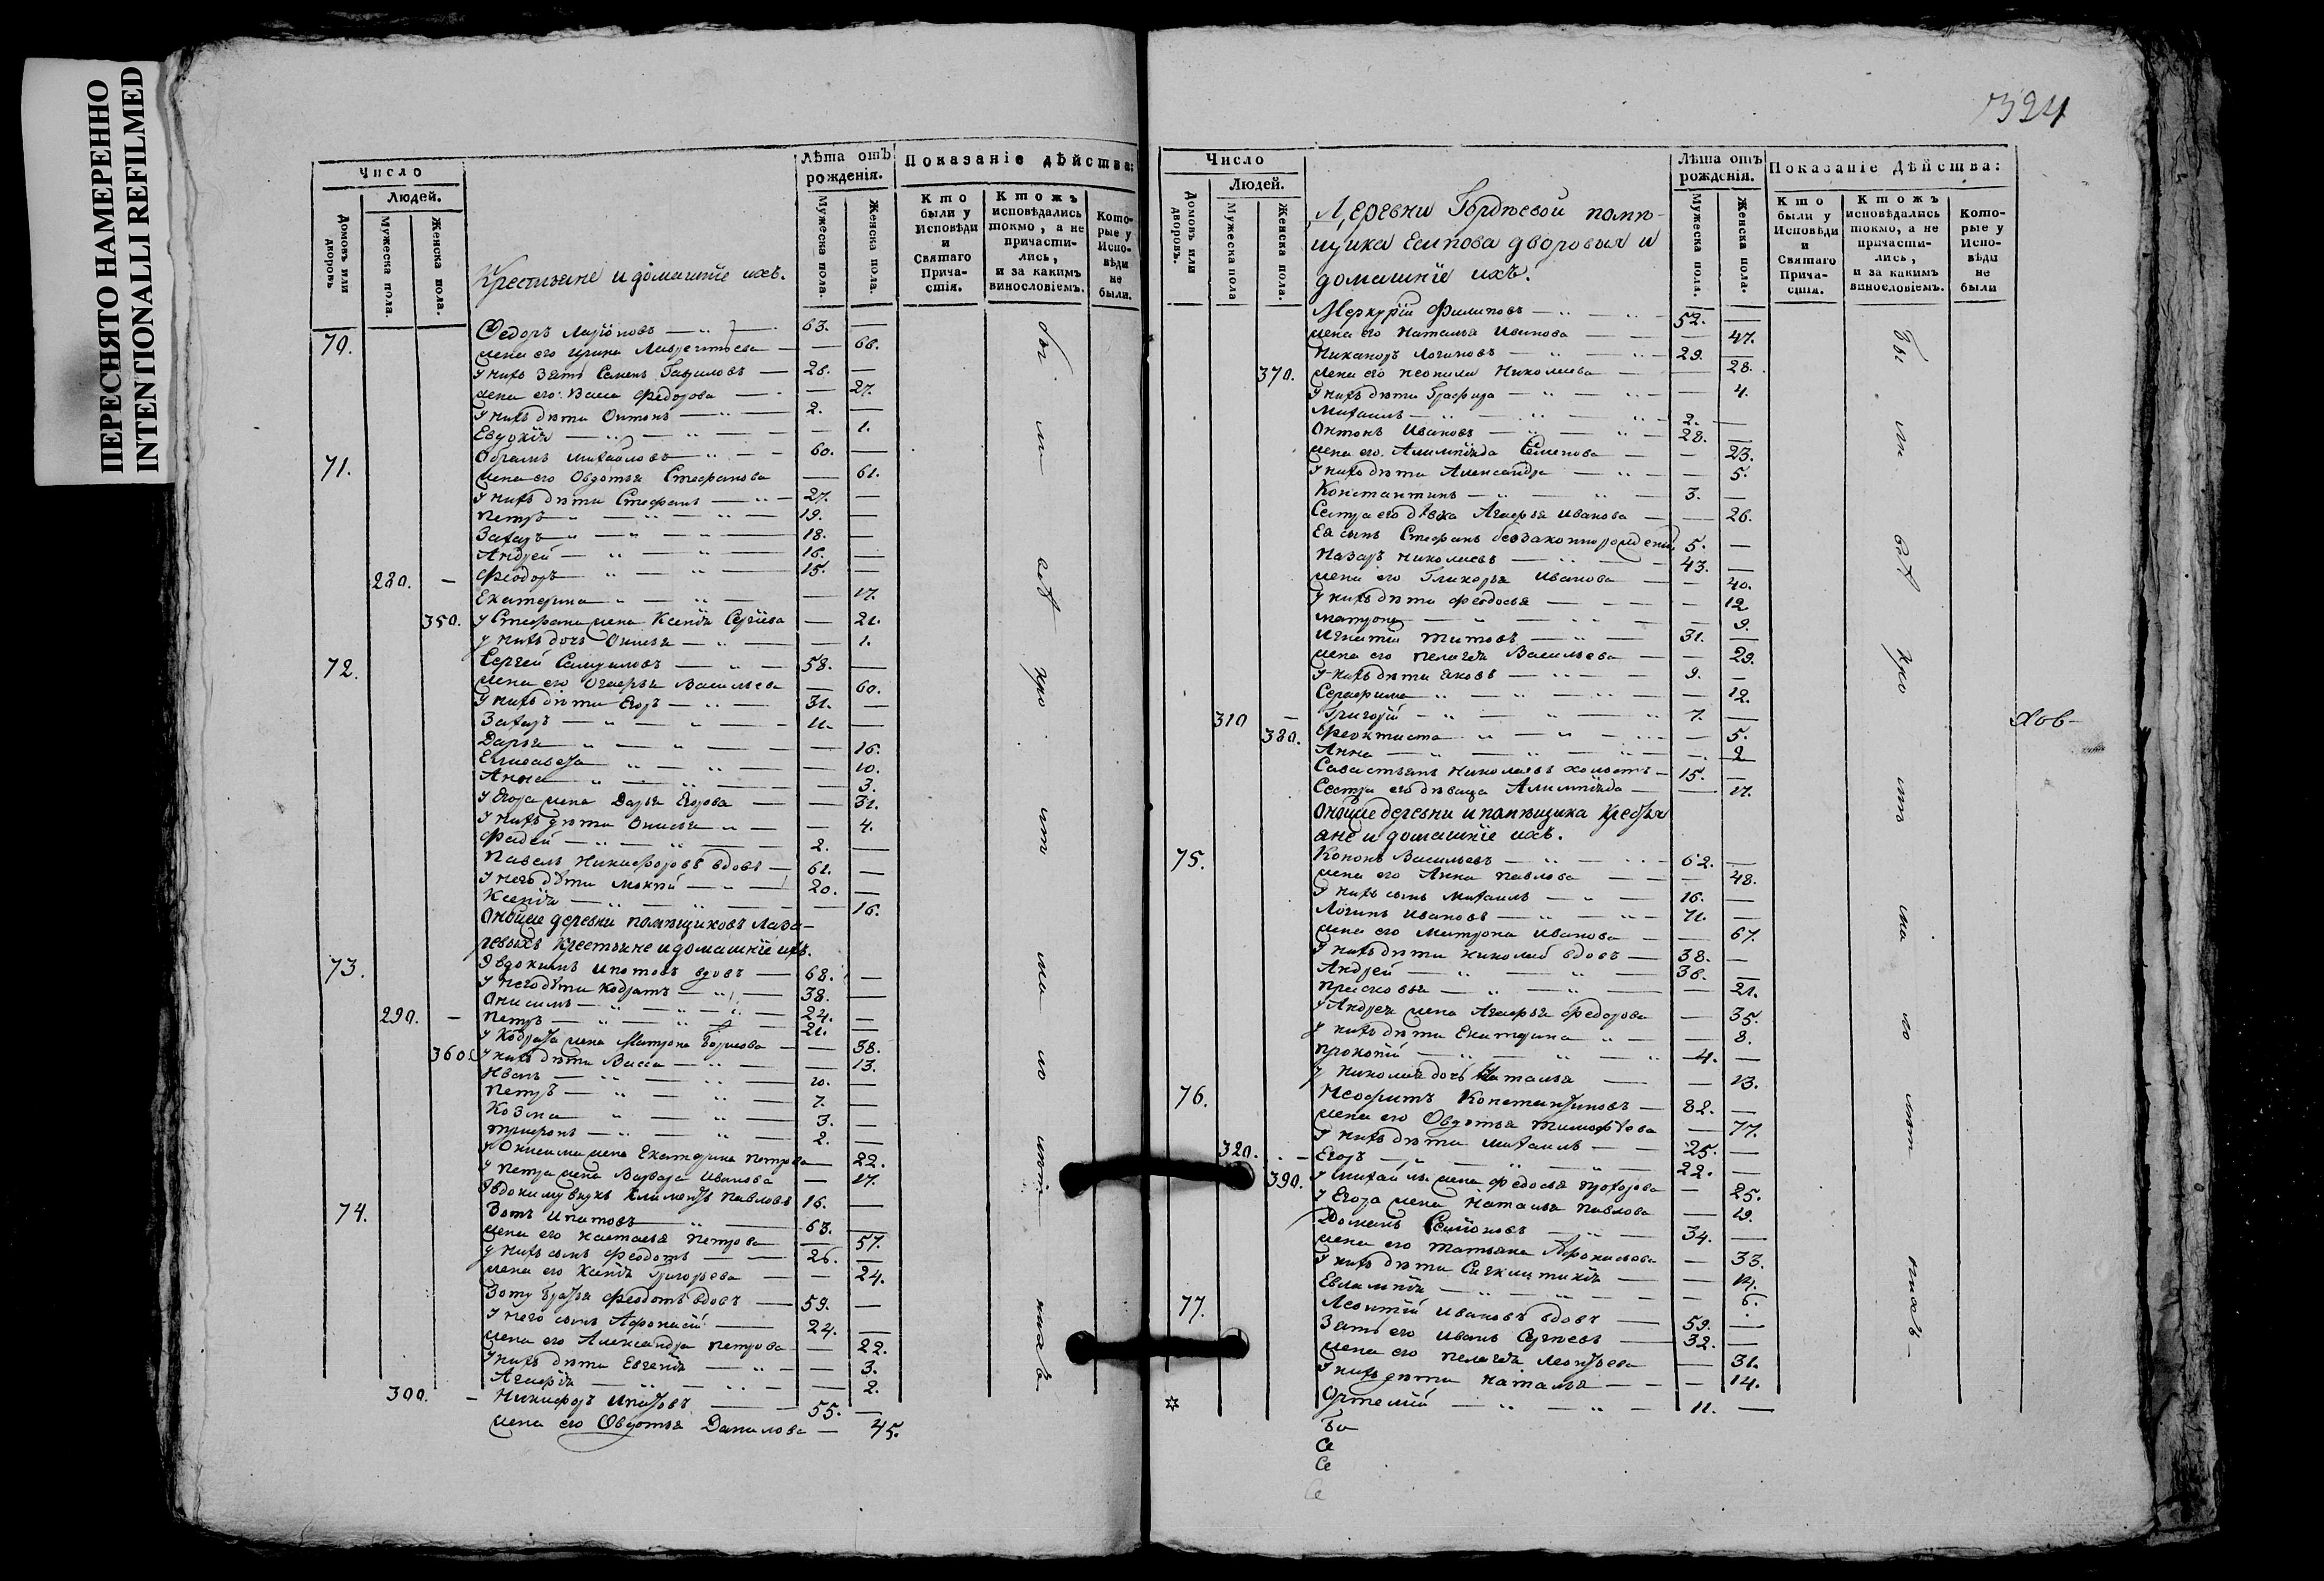 ПЕРЕСНЯТО НАМЕРЕННО
INTENTIONALLI REFILMED
Число
Людей.
Домовъ или дворовъ
Мужеска пола.
Женска пола.
Крестьяне и домашніе ихъ.
Лѣта отъ рожденія.
Мужеска пола.
Женска пола.
Показаніе дѣйства:
Кто были у Исповѣди и Святаго Причастія.
Ктожъ исповѣдались токмо, а не причастились, и за какимъ винословіемъ.
Которые у Исповѣди не были.
70. Федоръ 63.
жена его Ирина Лаврентьева 66.
у нихъ зять Семенъ Гавриловъ 28.
жена его Васса Федорова 27.
у нихъ дѣти Антонъ 2.
Евдокія 1.
71. Абрамъ Михайловъ 60.
жена его Овдотья Стефанова 61.
у нихъ дѣти Стефанъ 27.
Петръ 19.
Захаръ 18.
Андрей 16.
280. Феодоръ 15.
Екатерина 17.
350. у Стефана жена Ксенія Сергіева 21.
у нихъ дочь Онисья 1.
72. Сергей Самуиловъ 58.
жена его Огафья Васильева 60.
у нихъ дѣти Егоръ 31.
Захаръ 11.
Дарья 16.
Елисавета 10.
Анна 3.
у Егора жена Дарья Егорова 31.
у нихъ дѣти Онисья 4.
Фадей 2.
Павелъ Никифоровъ вдовъ 61.
у него дѣти Мокій 20.
Ксенія 16.
Оной же деревни помѣщиковъ Лаза-
ревыхъ крестьяне и домашніе ихъ.
73. Овдокимъ Ипатовъ вдовъ 68.
у него дѣти Кодратъ 38.
Онисимъ 24.
290. Петръ 21.
у Кодрата жена Матрона Борисова 38.
360. у нихъ дѣти Васса 13.
Иванъ 10.
Петръ 7.
Козма 3.
Трифонъ 2.
у Онисима жена Екатерина Петрова 22.
у Петра жена Варвара Иванова 17.
Овдокиму внукъ Климентъ Павловъ 16.
74. Зотъ Ипатовъ 63.
жена его Настасья Петрова 57.
у нихъ сынъ Феодотъ 26.
жена его Ксенія Григорьева 24.
Зоту братъ Феодотъ вдовъ 59.
у него сынъ Афонасій 24.
жена его Александра Петрова 22.
у нихъ дѣти Евгенія 3.
Агафія 2.
300. Никифоръ Ипатовъ 55.
жена его Овдотья Данилова 45.
324
Число
Людей.
Домовъ или дворовъ.
Мужеска пола
Женска пола.
Деревни Гордѣевой помѣ-
щика Есипова дворовыя и
домашніе ихъ.
Лѣта отъ рожденія.
Мужеска пола.
Женска пола.
Показаніе Дѣйства:
Кто были у Исповѣди и Святаго Причастія.
Ктожъ исповѣдались токмо, а не причастились, и за какимъ винословіемъ.
Которые у Исповѣди не были
Меркурій Филиповъ 52.
жена его Наталья Иванова 47.
Никаноръ Логиновъ 29.
370. жена его Неонила Николаева 28.
у нихъ дѣти Глафира 4.
Михаилъ 2.
Онтонъ Ивановъ 28.
жена его Алимпіяда Семенова 23.
у нихъ дѣти Александра 5.
Константинъ 3.
Сестра его дѣвка Агафья Иванова 26.
Ея сынъ Стефанъ беззаконнорожденный 5.
Назаръ Николаевъ 43.
жена его Гликерья Иванова 40.
у нихъ дѣти Феодосья 12
Матрона 9.
Игнатій Титовъ 31.
жена его Пелагея Васильева 29.
у нихъ дѣти Яковъ 9.
Серафима 12.
310 Григорій 7.
380. Феоктиста 5.
Анна 2
Савастьянъ Николаевъ холостъ 15.
Сестра его дѣвица Алимпіяда 17.
Оной же деревни и помѣщика крестья
ане и домашніе ихъ.
75. Кононъ Васильевъ 62.
жена его Анна Павлова 48.
у нихъ сынъ Михаилъ 16.
Логинъ Ивановъ 71.
жена его Матрона Иванова 67.
у нихъ дѣти Николай вдовъ 38.
Андрей 36.
Прасковья 21.
у Андрея жена Агафья Федорова 35.
у нихъ дѣти Екатерина 8.
Прокопій 4.
у Николая дочь Наталья 13.
76. Неофитъ Константиновъ 82.
жена его Овдотья Тимофѣева 77.
у нихъ дѣти Михаилъ 25.
320. Егоръ 22.
390. у Михайлы жена Федосья Прохорова 25.
у Егора жена Наталья Павлова 19.
Доманъ 34.
жена его Татьяна 33.
у нихъ дѣти Синклитикія 14.
Евлампія 6.
77. Леонтій Ивановъ вдовъ 59.
Зять его Иванъ Сергѣевъ 32.
жена его Пелагея Леонтьева 31.
у нихъ дѣти Наталья 14.
Ортемій 11.
Бо
Се
Се
Се